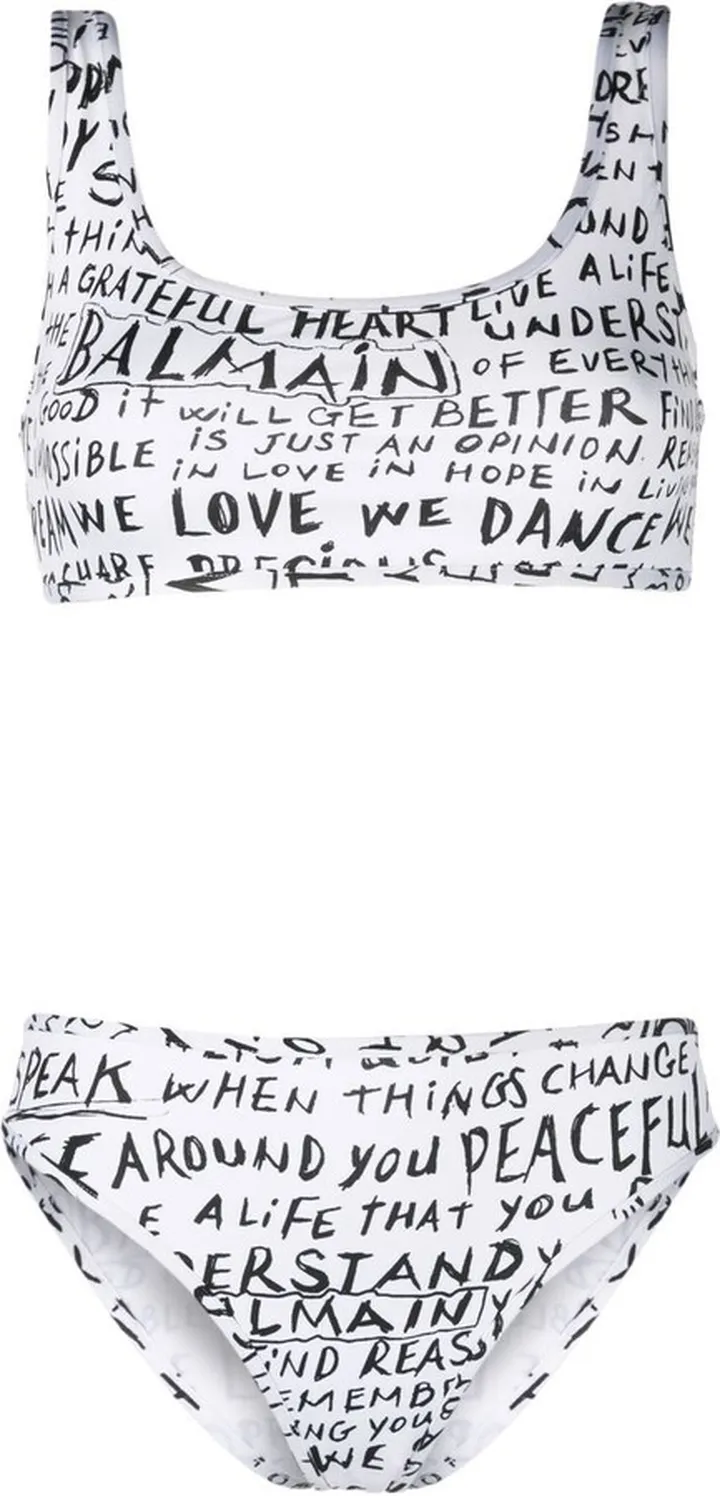 THIN
A GRATEFUL HEART LIVE A LiFE
THE BALMAiN UNDERST
OF EVERYTHI
GOOD iT WiLL GET BETTER FiND
POSSiBLE iS JUST AN OPINION. RE
iN LOVE iN HOPE iN LiViN
EAM WE LOVE WE DANCE WE
SHARE PRECiOUS
SPEAK WHEN THiNGS CHANGE
AROUND YOU PEACEFUL
E A LiFE THAT YOU
DERSTAND Y
ALMAIN Y
FiND REAS
EMEMB
ING YOU
WE D